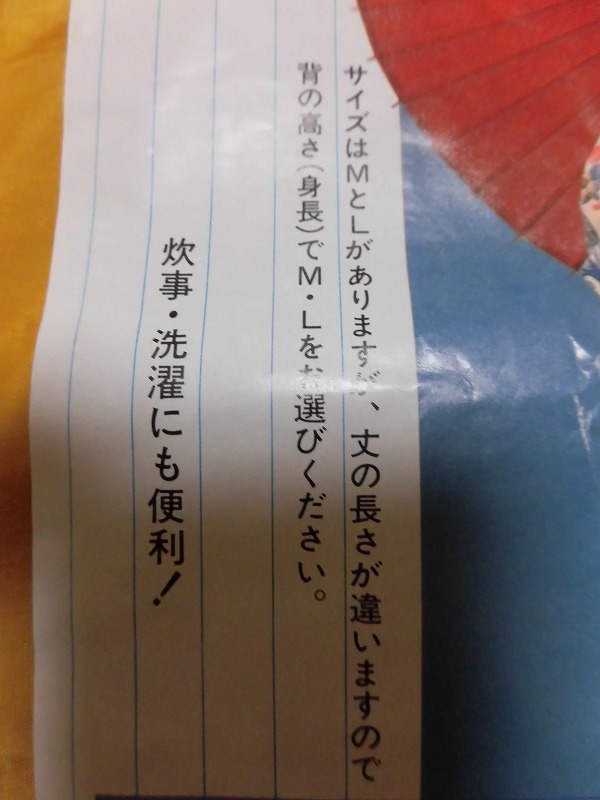 サイズはMとLがありますが、丈の長さが違いますので
背の高さ(身長)でM・Lをお選びください。
炊事・洗濯にも便利!